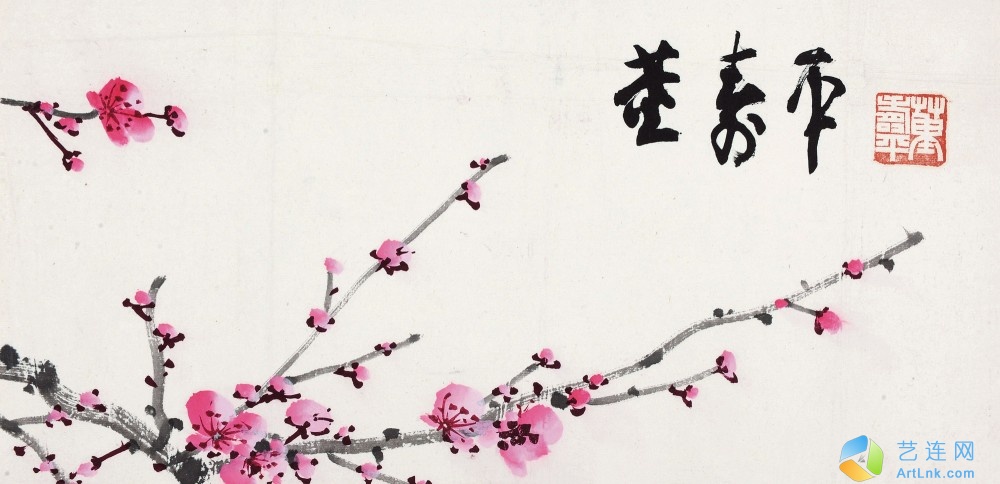 董寿平
董壽平
艺连网
ArtLnk.com